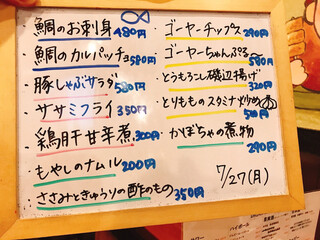 ・鯛のお刺身 480円
・鯛のカルパッチョ 580円
・豚しゃぶサラダ 580円
・ササミフライ 350円
・鶏肝甘辛煮 300円
・もやしのナムル 200円
・ささみときゅうりの酢のもの 350円
・ゴーヤーチップス 290円
・ゴーヤーちゃんぷる 580円
・とうもろこし磯辺揚げ 320円
・とりもものスタミナ炒め 500円
・かぼちゃの煮物 290円
7/27(月)
ハイボール